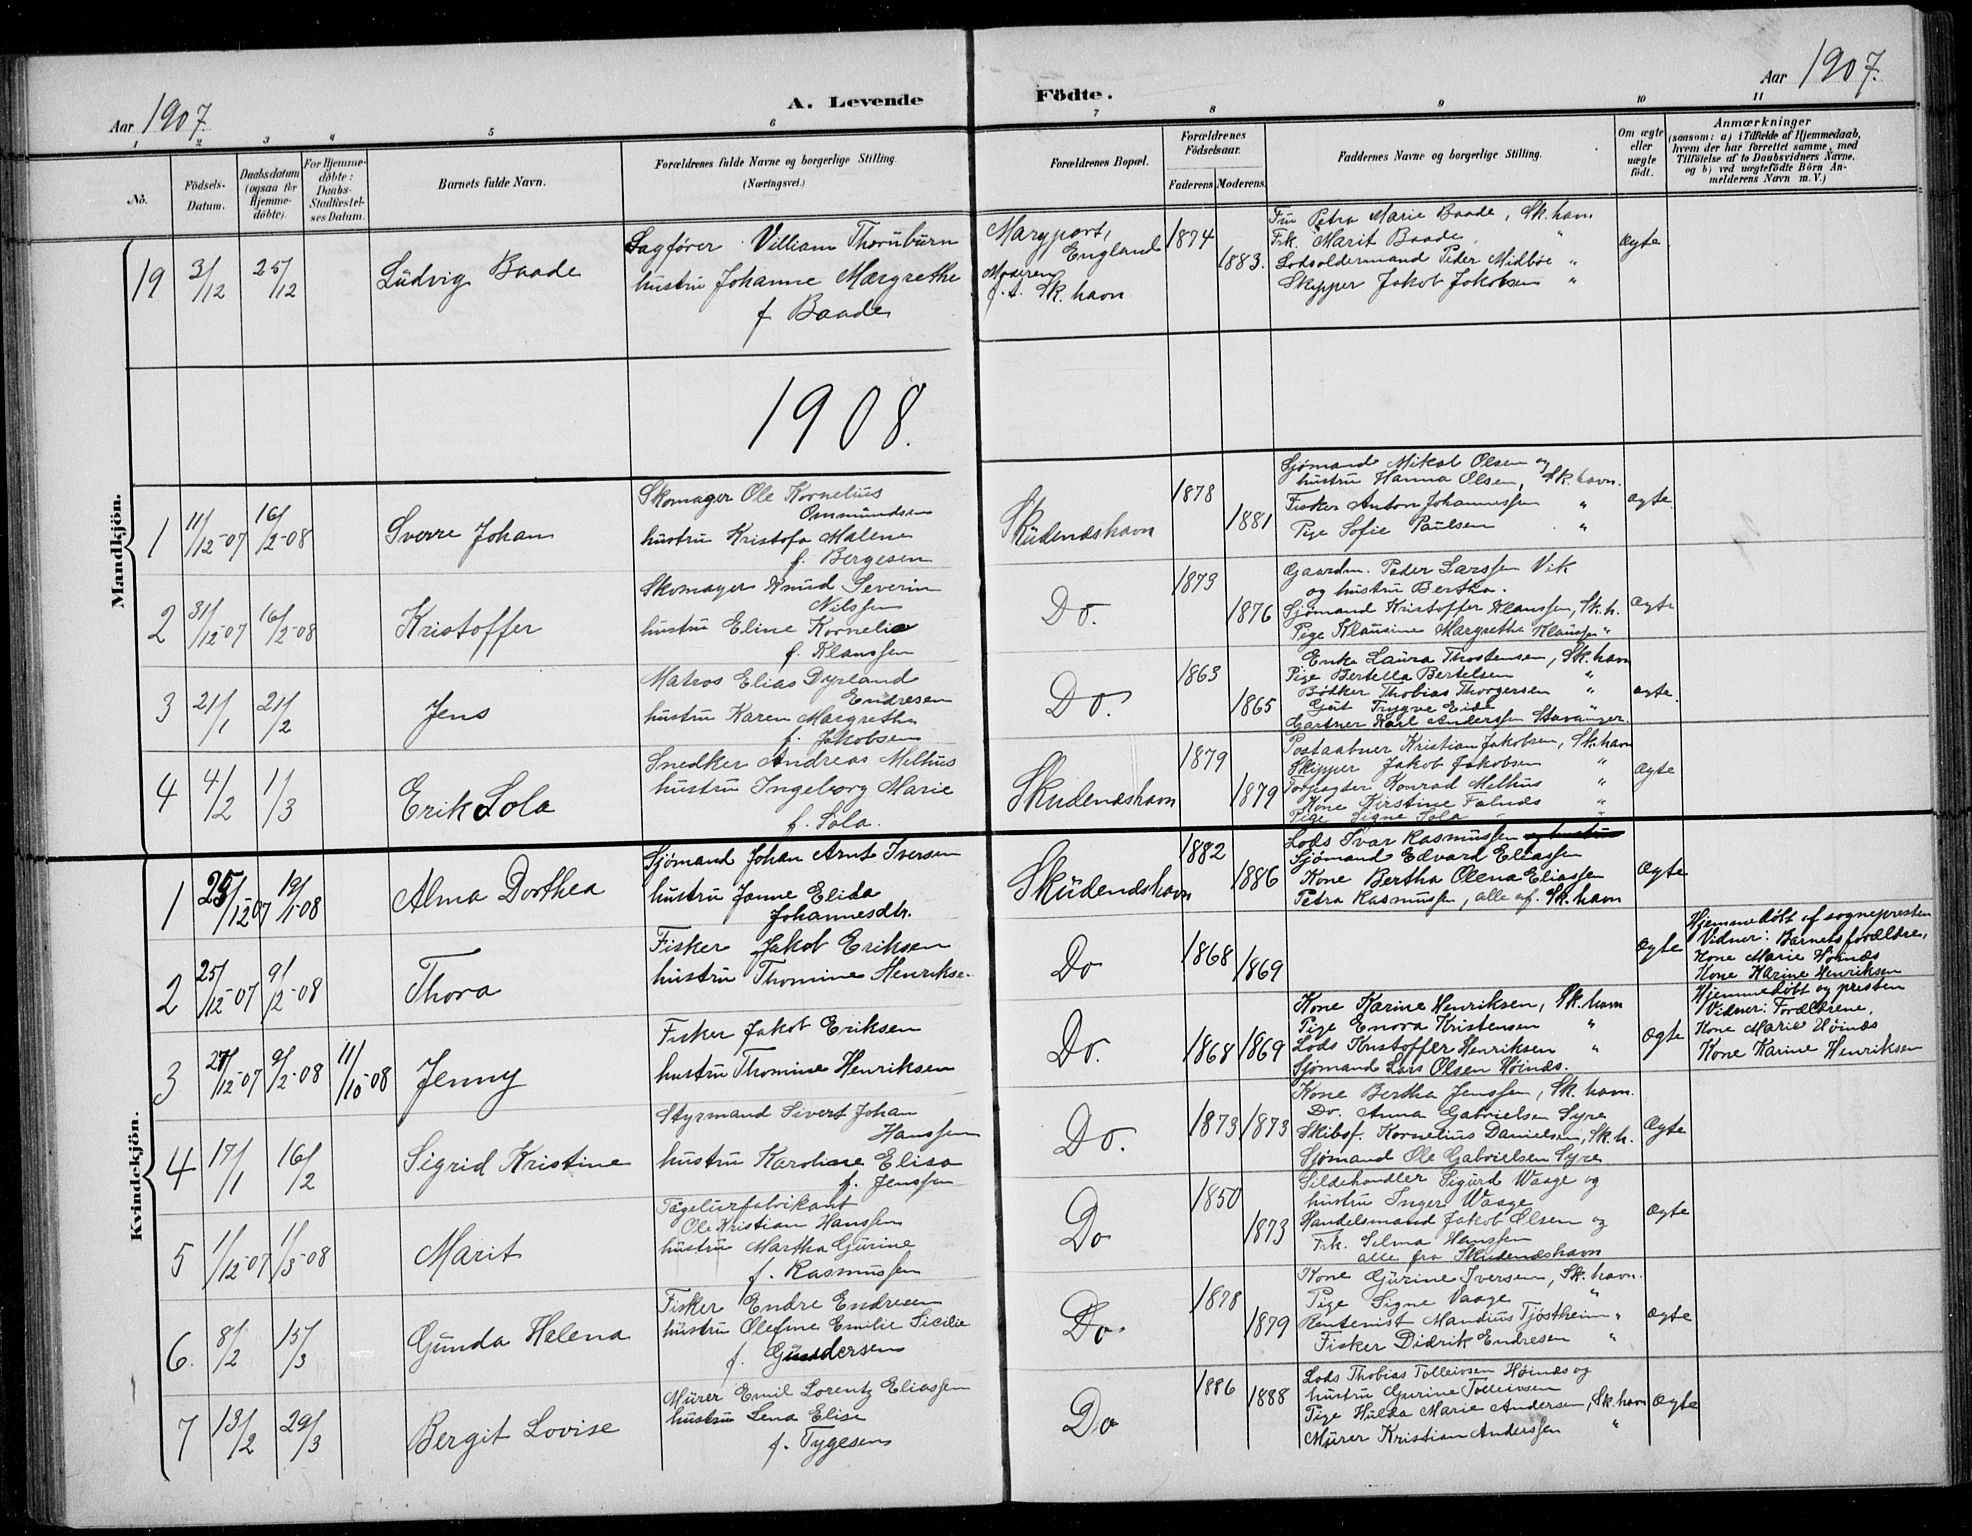 Aar 1907.
A. Levende
Födte.
Aar 1907.
1 2 3 4 5 6 7 8 9 10 11
No.
Födsels-Datum.
Daabsdatum (ogsaa for Hjemme-döbte).
For Hjemme-döbte: Daabs-Stadfæstel-ses Datum.
Barnets fulde Navn.
Forældrenes fulde Navne og borgerlige Stilling.
(Næringsvei.)
Forældrenes Bopæl.
Forældrenes Födselsaar.
Faderens Moderens.
Faddernes Navne og borgerlige Stilling.
Om ægte eller uægte födt.
Anmærkninger
(saasom: a) i Tilfælde af Hjemmedaab,
hvem der har forrettet samme, med
Tilföielse af to Daabsvidners Navne.
og b) ved uægtefödte Börn An-
melderens Navn m. V.)
Mandkjön.
19 3/12 25/12 Ludvig Baade
Sagfører Villiam Thornburn
hustru Johanne Margrethe
f. Baade
Maryport,
England
Moderen
f. t. Sk.havn
1874 1883.
Fru Petra Marie Baade, Sk.havn
Frk. Marit Baade, "
Lodsoldermand Peder Midbøe "
Skipper Jakob Jakobsen "
Ægte
1908.
1 11/12-07 16/2-08 Sverre Johan
Skomager Ole Kornelius
Ommundsen
hustru Kristofa Malene
f. Bergesen
Skudeneshavn
1878 1881
Sjømand Mikal Olsen og
hustru Hanna Olsen, Sk.havn.
Fisker Anton Johannessen "
Pige Sofie Paulsen "
Ægte
2 31/12-07 16/2-08 Kristoffer
Skomager Knud Severin
Nilssen
hustru Eline Kornelia
f. Klaussen
Do.
1873 1876
Gaardm. Peder Larssen Vik
og hustru Bertha.
Sjømand Kristoffer Klaussen, Sk.h.
Pige Klausine Margrethe Klaussen "
Ægte
3 21/1 21/2 Jens
Matros Elias Dyrland
Endresen
hustru Karen Margrethe
f. Jakobsen
Do.
1863 1865
Enke Laura Thostensen, Sk.havn
Pige Bertella Bertelsen "
Bødker Thobias Thorgersen "
Gut Trygve Eide
Gartner Karl Anderssen Stavanger.
ægte
4 4/2 1/3 Erik Sola
Snedker Andreas Melhus
hustru Ingeborg Marie
f. Sola.
Skudeneshavn
1879 1879
Postaabner Kristian Jakobsen, Sk.havn
Skipper Jakob Jakobsen "
Forpagter Konrad Melhus "
Kone Kirstine Falnæs "
Pige Signe Sola "
Ægte
Kvindekjön.
1 25/12 07 19/1-08 Alma Dorthea
Sjømand Johan Arnt Iversen
hustru Janne Elida
Johannesdtr.
Skudeneshavn
1882 1886
Lods Ivar Rasmussen og hustru
Sjømand Edvard Eliassen
Kone Bertha Olena Eliassen
Petra Rasmussen, alle af Sk.havn
Ægte
2 25/12-07 9/2-08 Thora
Fisker Jakob Eriksen
hustru Thomine Henrikse.
Do
1868 1869
Ægte
Hjemmedøbt af sognepresten
Vidner: Barnets forældre,
Kone Marie Høinæs
Kone Karine Henriksen
3 27/12-07 9/2-08 11/10-08 Jenny
Fisker Jakob Eriksen
hustru Thomine Henriksen
Do.
1868 1869
Kone Karine Henriksen, Sk.havn
Pige Enora Kristensen "
Lods Kristoffer Henriksen "
Sjømand Lars Olsen Høinæs.
Ægte
Hjemmedøbt og presten
Vidner: Forældrene,
Kone Marie Høinæs
Kone Karine Henriksen
4 17/1 16/2 Sigrid Kristine
Styrmand Sivert Johan
Hanssen
hustru Karoline Elisa
f. Jenssen
Do.
1873 1873
Kone Bertha Jenssen, Sk.havn.
Do. Anna Gabrielsen Syre
Skibsf. Kornelius Danielsen, Sk.h.
Sjømand Ole Gabrielsen Syre
Ægte
5 1/12-07 1/3-08 Marit
Ole Kristian Hanssen
hustru Martha Gurine
f. Rasmussen
Do
1850 1873
Sildehandler Sigurd Waage og
hustru Inger Waage
Handelsmand Jakob Olsen og
Frk. Selma Hanssen
alle fra Skudeneshavn
Ægte
6. 8/2 15/3 Gunda Helena
Fisker Endre Endresen
hustru Olefine Emilie Sicilie
f. Gundersen
Do.
1878 1879
Kone Gurine Iversen, Sk.havn.
Pige Signe Vaage "
Rentenist Mandius Tjøstheim "
Fisker Didrik Endresen "
Ægte
7 13/2 29/3 Bergit Lovise
Murer Emil Lorentz Eliassen
hustru Lena Elise
f. Tygesen
Do
1886 1888
Lods Thobias Tolleivsen Høinæs og
hustru Gurine Tolleivsen
Pige Hulda Marie Andersen, Sk.havn
Murer Kristian Anderssen "
Ægte